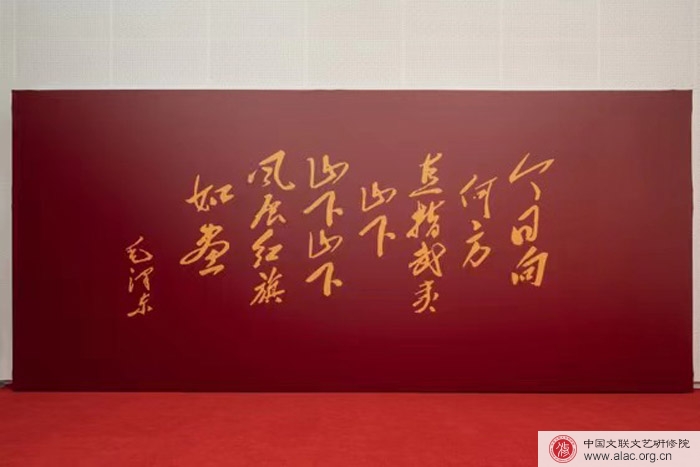 今日向
何方
直指武夷
山下
山下山下
风展红旗
如画
毛泽东
中国文联文艺研修院
www.alac.org.cn